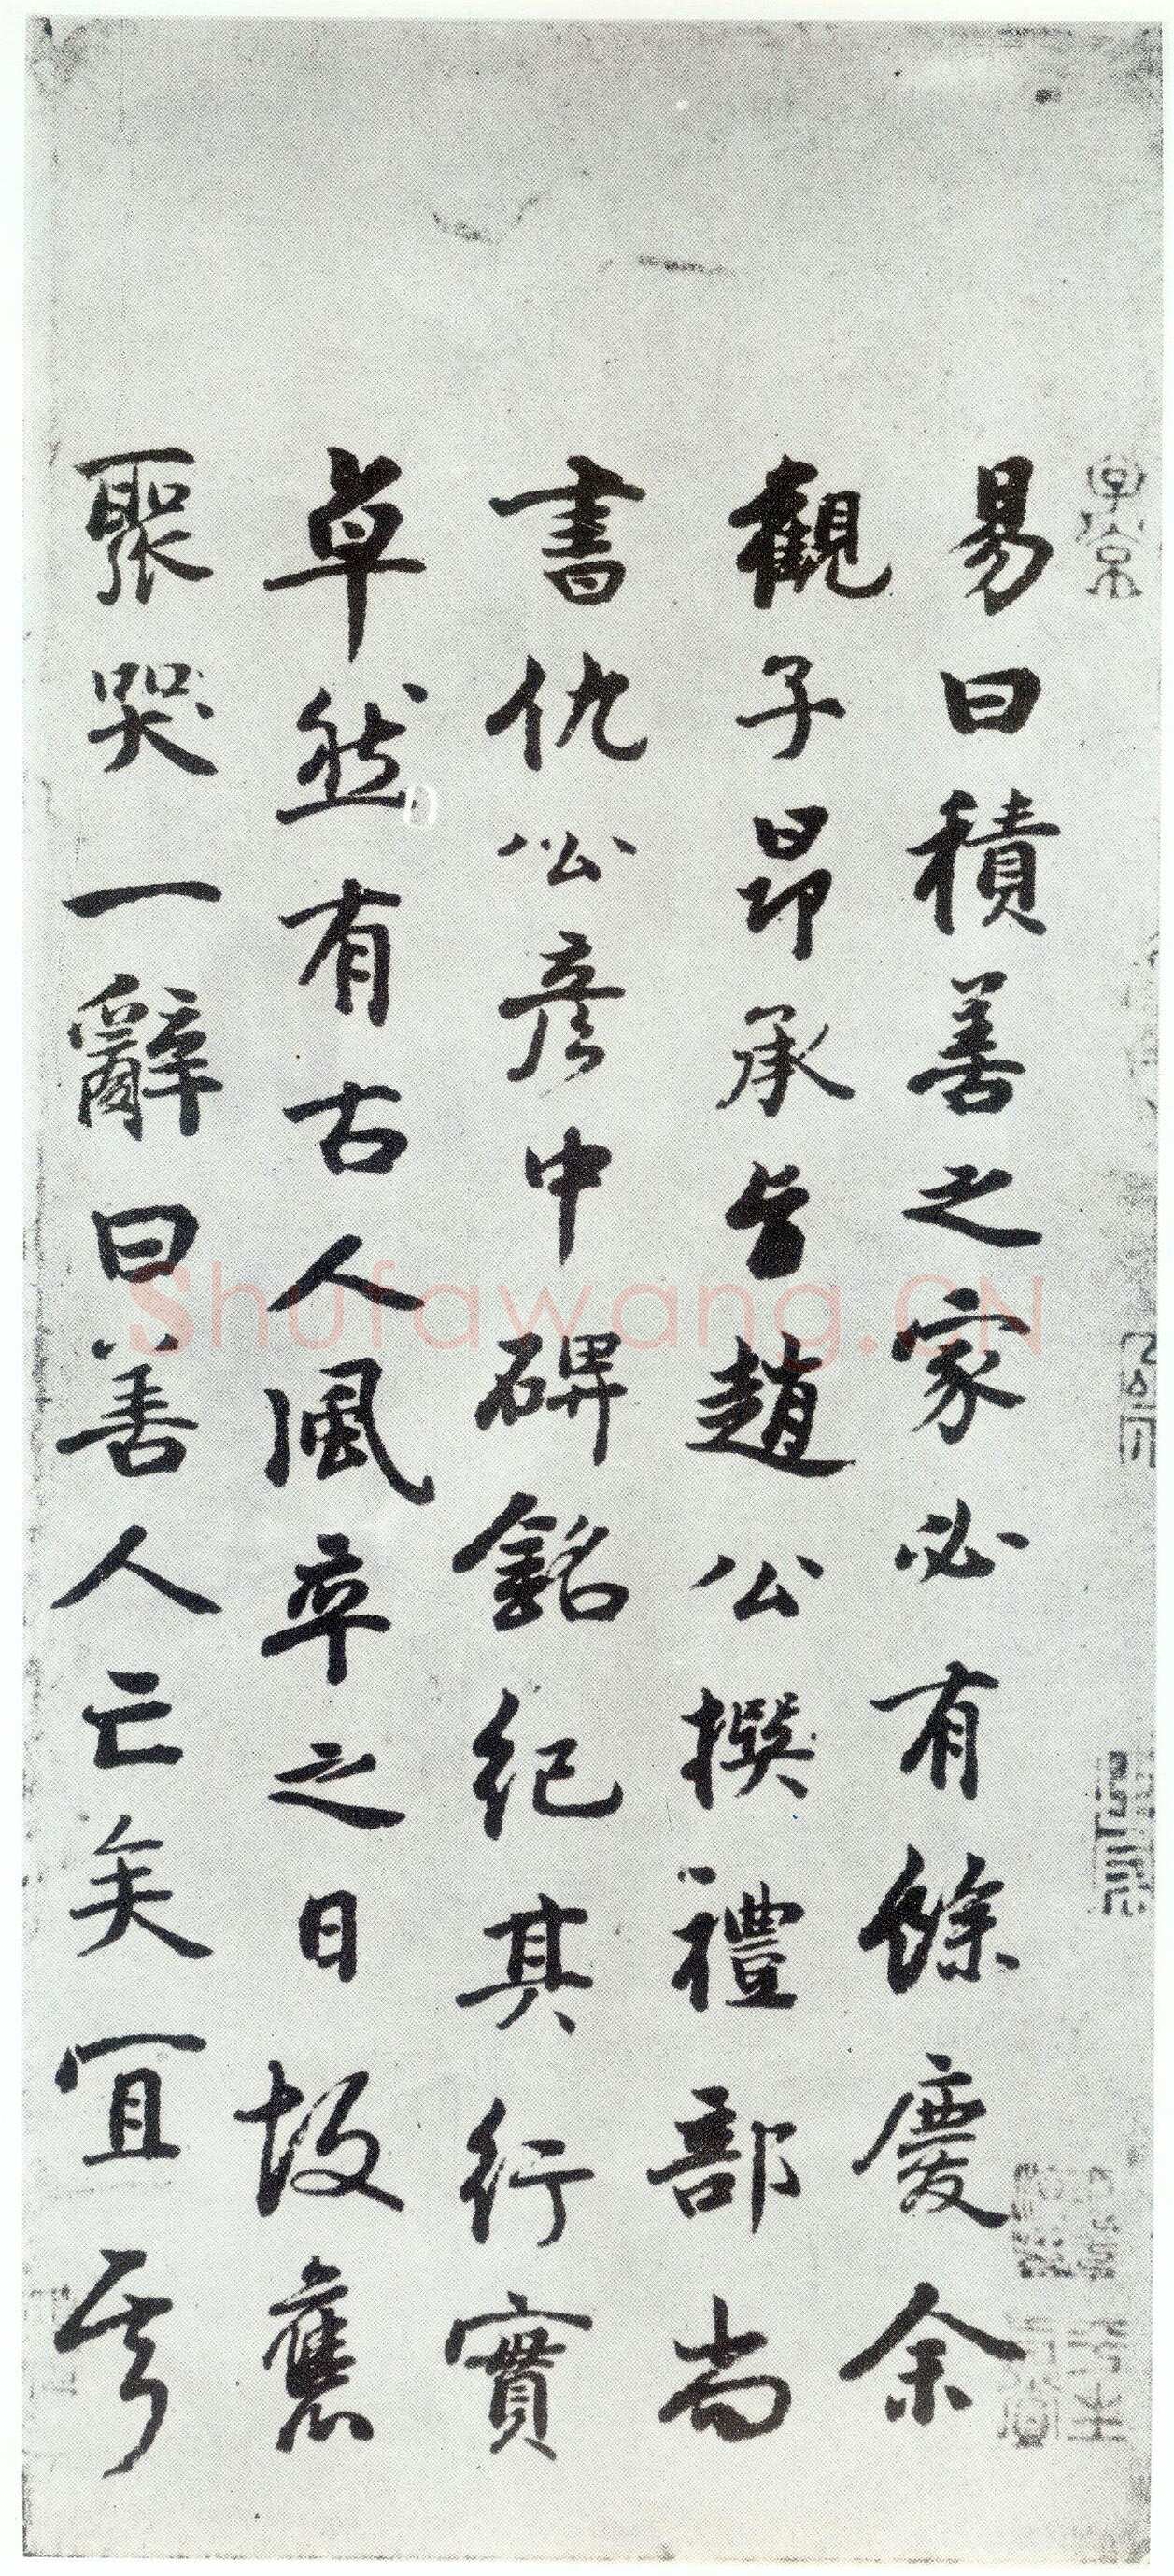 易曰積善之家必有餘慶余
觀子昂承旨趙公撰禮部尚
書仇公彦中碑銘紀其行實
卓然有古人風卒之日故舊
聚哭一辭曰善人亡矣宜乎
Shufawang.CN